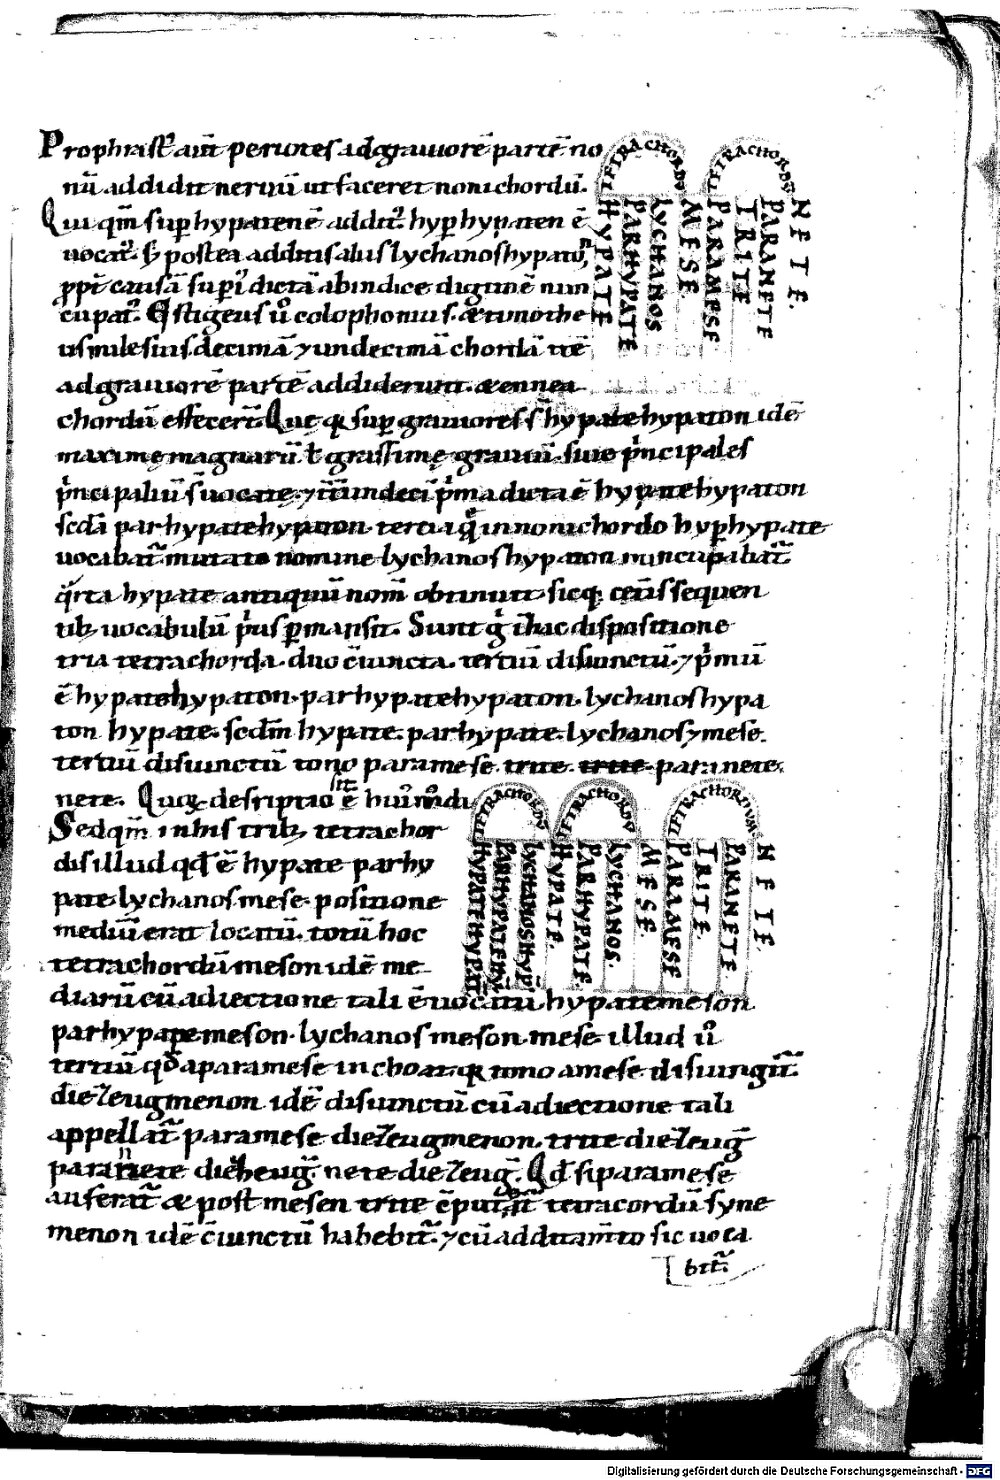 Prophrast' aūt periotes ad grauiorē partē no
nū addidit neruū ut faceret nonichordū.
Qui qm̄ sup hypatenē addit' hyphypaten ē
uocat'. S; postea additis aliis lychanos hypatō,
ppt causā supi' dictā ab indice digitinē nun
cupat'. Estigeus u° colophonius. & timothe
us milesius. decimā ⁊ undecimā chordā ītē
ad grauiorē partē addiderunt. & ennea
chordū effecerūt. Quę q; sup grauiores s̄ hypate hypaton idē
maximę magnarū. ł grauissimę grauiū. siue p'ncipales
p'ncipaliū s̄ uocate. ⁊ ītundeci p'ma dicta ē hypate hypaton
scdā parhypate hypaton. tertia q̄ in nonichordo hyphypate
uocabat' mutato nomine lychanos hypaton nuncupabat'.
q'rta hypate antiquū nom̄ obtinuit. sicq; cet'is sequen
tib; uocabulū p'us pmansit. Sunt g° ī hac dispositione
tria tetrachorda. duo c̄iuncta. tertiū disiunctū. ⁊ p'mū
ē hypate hypaton. parhypate hypaton. lychanos hypa
ton hypate. scdm̄ hypate. parhypate. lychanos ⁊ mese.
tertiū disiunctū tono paramese. trite. trite. paranete.
nete. Quę descriptio sit ē hui' modi
Sed qm̄ in his trib; tetrachor
dis illud qd̄ ē hypate parhy
pate lychanos mese positione
mediū erat locatū. totū hoc
tetrachordū meson idē me
diarū cū adiectione tali ē uocatū hypate meson
parhypate meson. lychanos meson. mese. illud u°
tertiū qd̄ a paramese inchoat q; tono a mese disiungit'.
diezeugmenon idē disiunctū cū adiectione tali
appellat' paramese diezeugmenon. trite diezeuḡ
paranete diezeuḡ. nete diezeuḡ. Qd̄ si paramese
auferat' & post mesen trite c̄putat' tetracordū syne
menon idē c̄iunctū habebit'. ⁊ cū additam̄to sic uoca
bit'.
TETRACHORDŪ TETRACHORDŪ
HYPATE
PARHYPATE
LYCHANOS
MESE
PARAMESE
TRITE
PARANETE
NETE.
TETRACHORDŪ TETRACHORDŪ TETRACHORDUM
HYPATE HYPAT
PARHYPATE HY
LYCHANOS HYP
HYPATE.
PARHYPATE
LYCHANOS.
MESE
PARAMESE
TRITE.
PARANETE.
NETE.
Digitalisierung gefördert durch die Deutsche Forschungsgemeinschaft - DFG